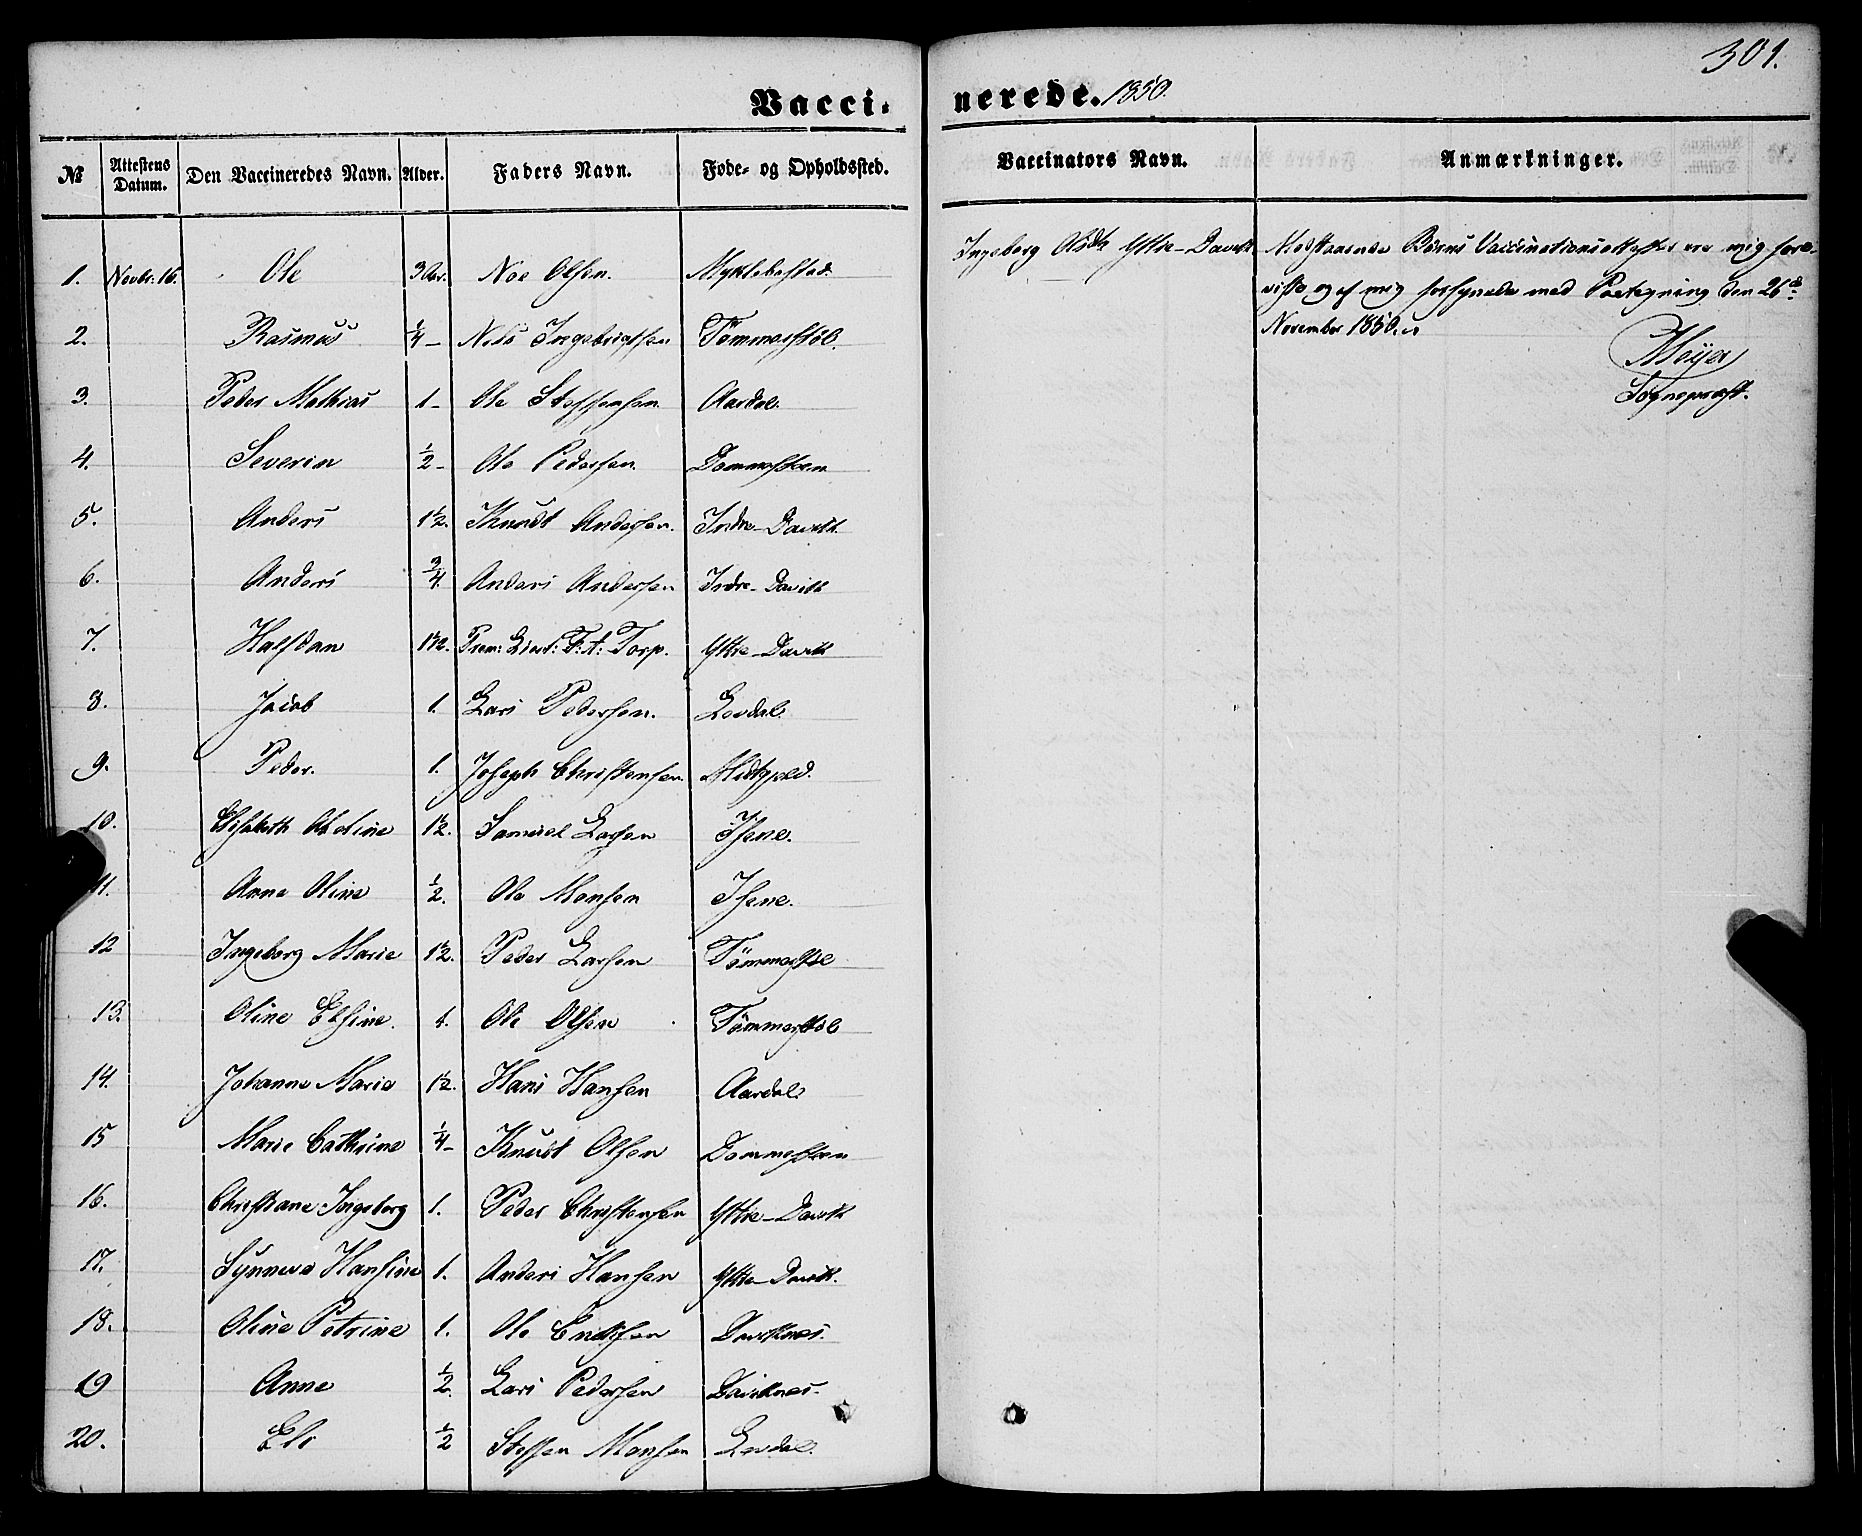 301.
Vacci- nerede. 1850.
№ Attestens Datum. Den Vaccineredes Navn. Alder. Faders Navn. Føde- og Opholdssted. Vaccinators Navn. Anmærkninger.
1. Novbr: 16. Ole 3 Aar. Noe Olsen. Myklebostad. Ingeborg Ytre-Davik Medstaaende Børns Vaccinationsattester ere mig fore-
viste og af mig forsynede med Paategning den 26de
2. Rasmus 1/4 - Nils Ingebrigtsen Tømmerstøl. November 1850.
Meyer
3. Peder Mathias 1 - Ole Steffensen Aardal. Sognepræst.
4. Severin 1/2 - Ole Pedersen. Dommesteen
5. Anders 1 1/2. Knudt Andersen. Indre-Davik
6. Anders 3/4. Anders Andersen Indre-Davik
7. Halfdan 1 1/2. Prem: Lieut: F: A: Torp. Ytre-Davik
8. Jacob 1. Lars Pedersen. Levdal.
9. Peder. 1. Joseph Christensen. Midtgaard.
10. Elisabeth Abeline 1 1/2. Samuel Larsen Isene.
11. Anne Oline 1/2. Ole Monsen Isene.
12 Ingeborg Marie 1 1/2. Peder Larsen Tømmerstøl
13. Oline Elsine. 1. Ole Olsen Tømmerstøl
14. Johanne Marie 1 1/2. Hans Hansen Aardal.
15 Marie Cathrine 1/4 - Knudt Olsen Dommesteen
16. Christiane Ingeborg 1. Peder Christensen Ytre-Davik
17. Synneva Hansine 1. Anders Hansen Ytre-Davik.
18. Oline Petrine 1. Ole Ericksen Daviknes.
19 Anne 1/2. Lars Pedersen Daviknes.
20. Eli 1/2 Steffen Monsen Levdal.